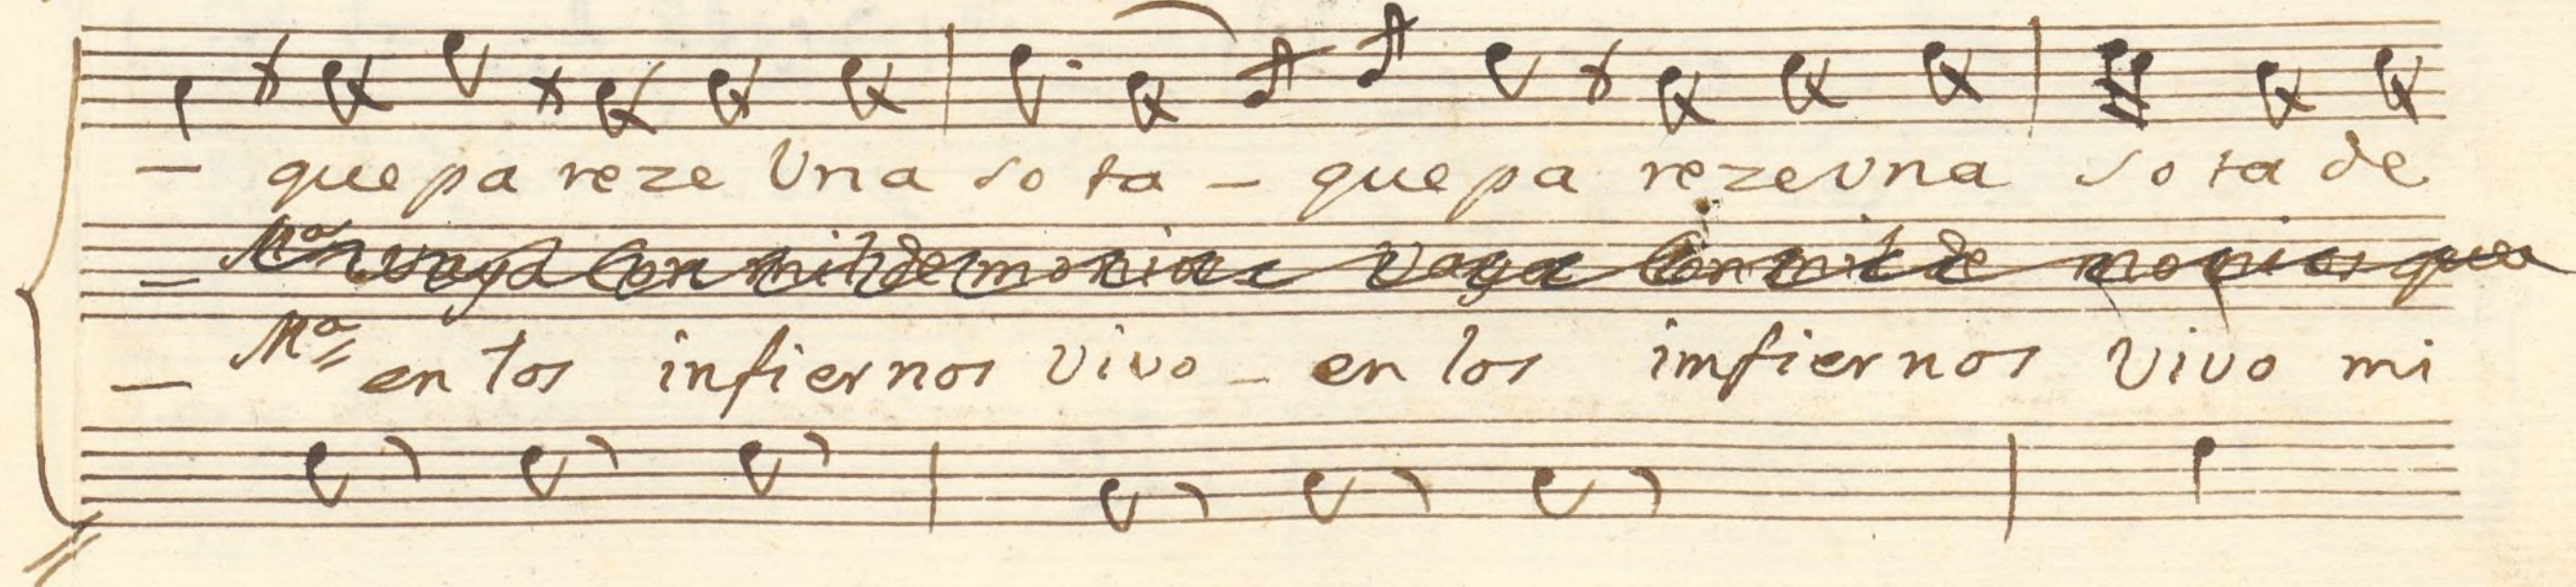 – que pa reze Una so ta – que pa reze una so ta de
– Mª vaya Con mil demonios vaya Con mil de monios que
– Mª en los infiernos vivo – en los imfiernos vivo mi